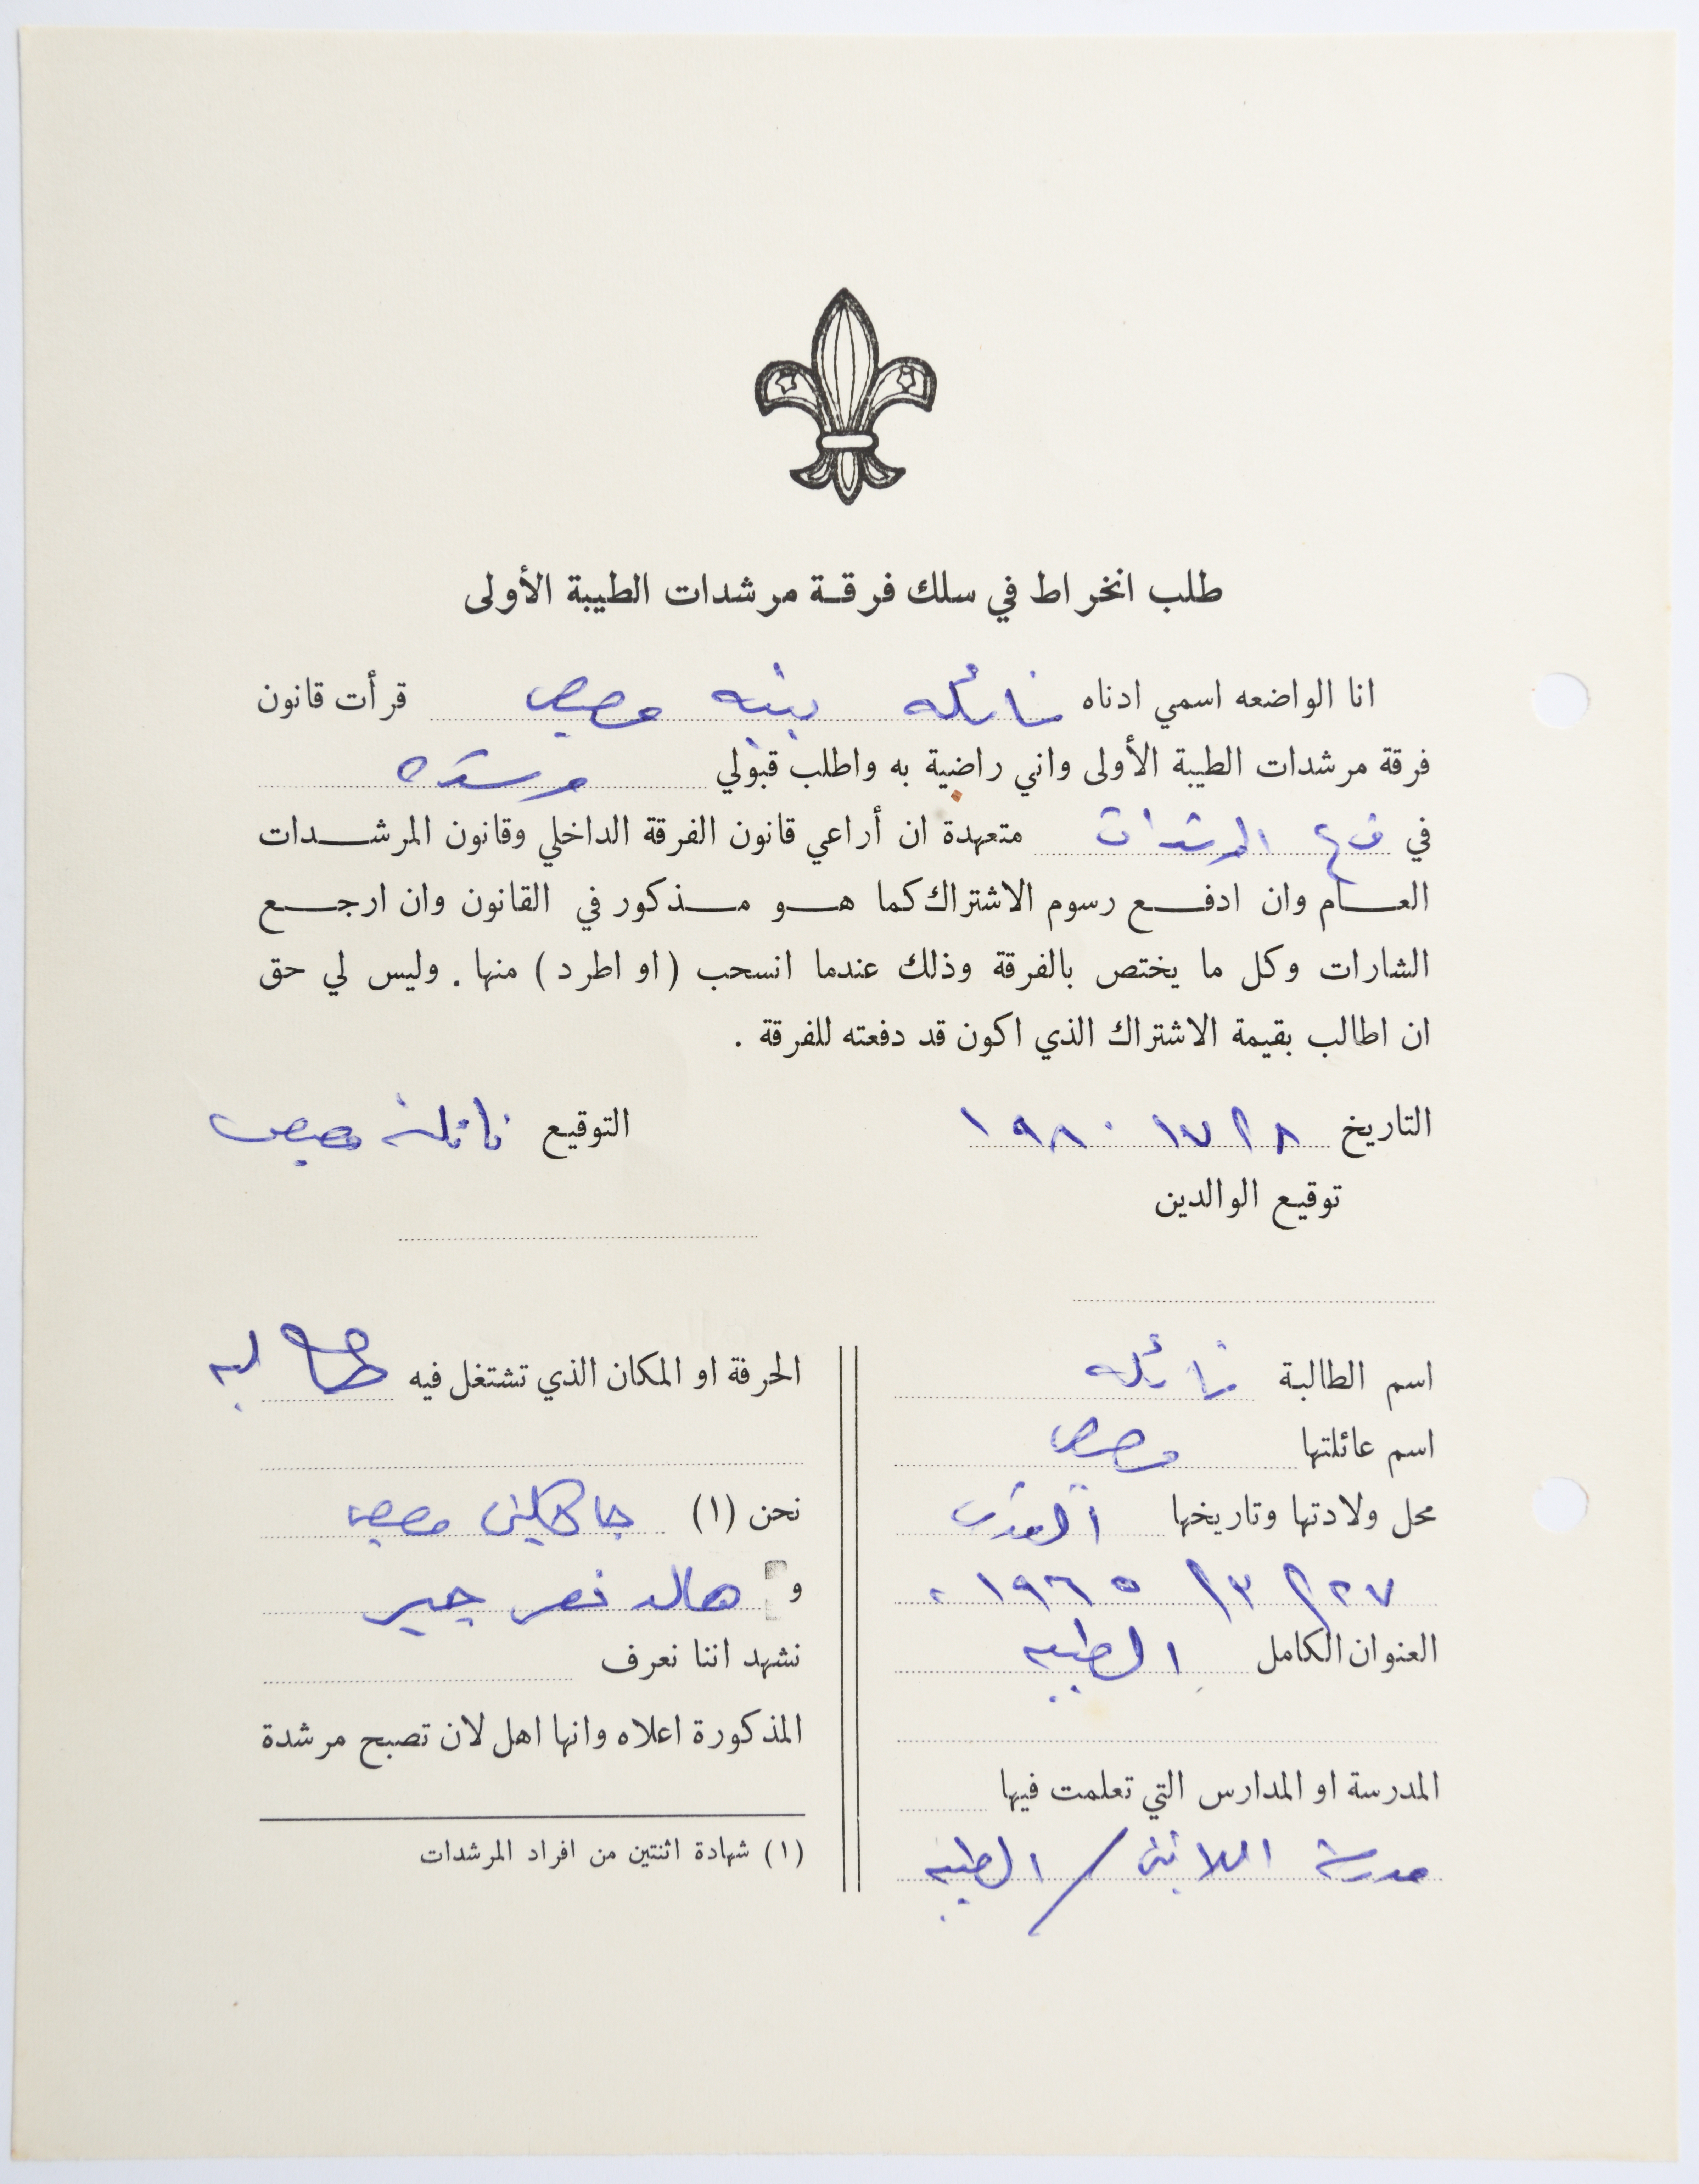 طلب انخراط في سلك فرقة مرشدات الطيبة الأولى
انا الواضعه اسمي ادناه نائله بنيه مصيص قرأت قانون
فرقة مرشدات الطيبة الأولى واني راضية به واطلب قبولي مرشده
في فرع المرشدات متعهدة ان أراعي قانون الفرقة الداخلي وقانون المرشدات
العام وان ادفع رسوم الاشتراك كما هو مذكور في القانون وان ارجع
الشارات وكل ما يختص بالفرقة وذلك عندما انسحب (او اطرد) منها. وليس لي حق
ان اطالب بقيمة الاشتراك الذي اكون قد دفعته للفرقة .
التاريخ ١٩٨٠ التوقيع نائلة مصيص
توقيع الوالدين
اسم الطالبة نائله
اسم عائلتها مصيص
محل ولادتها وتاريخها القدس
٢٧ / ٣ / ١٩٦٥
العنوان الكامل الطيبه
المدرسة او المدارس التي تعلمت فيها
مدرسة اللاتين / الطيبه
الحرفة او المكان الذي تشتغل فيه طالبه
نحن (١) جاكلين مصيص
و هالد نصر
نشهد اننا نعرف
المذكورة اعلاه وانها اهل لان تصبح مرشدة
(١) شهادة اثنتين من افراد المرشدات